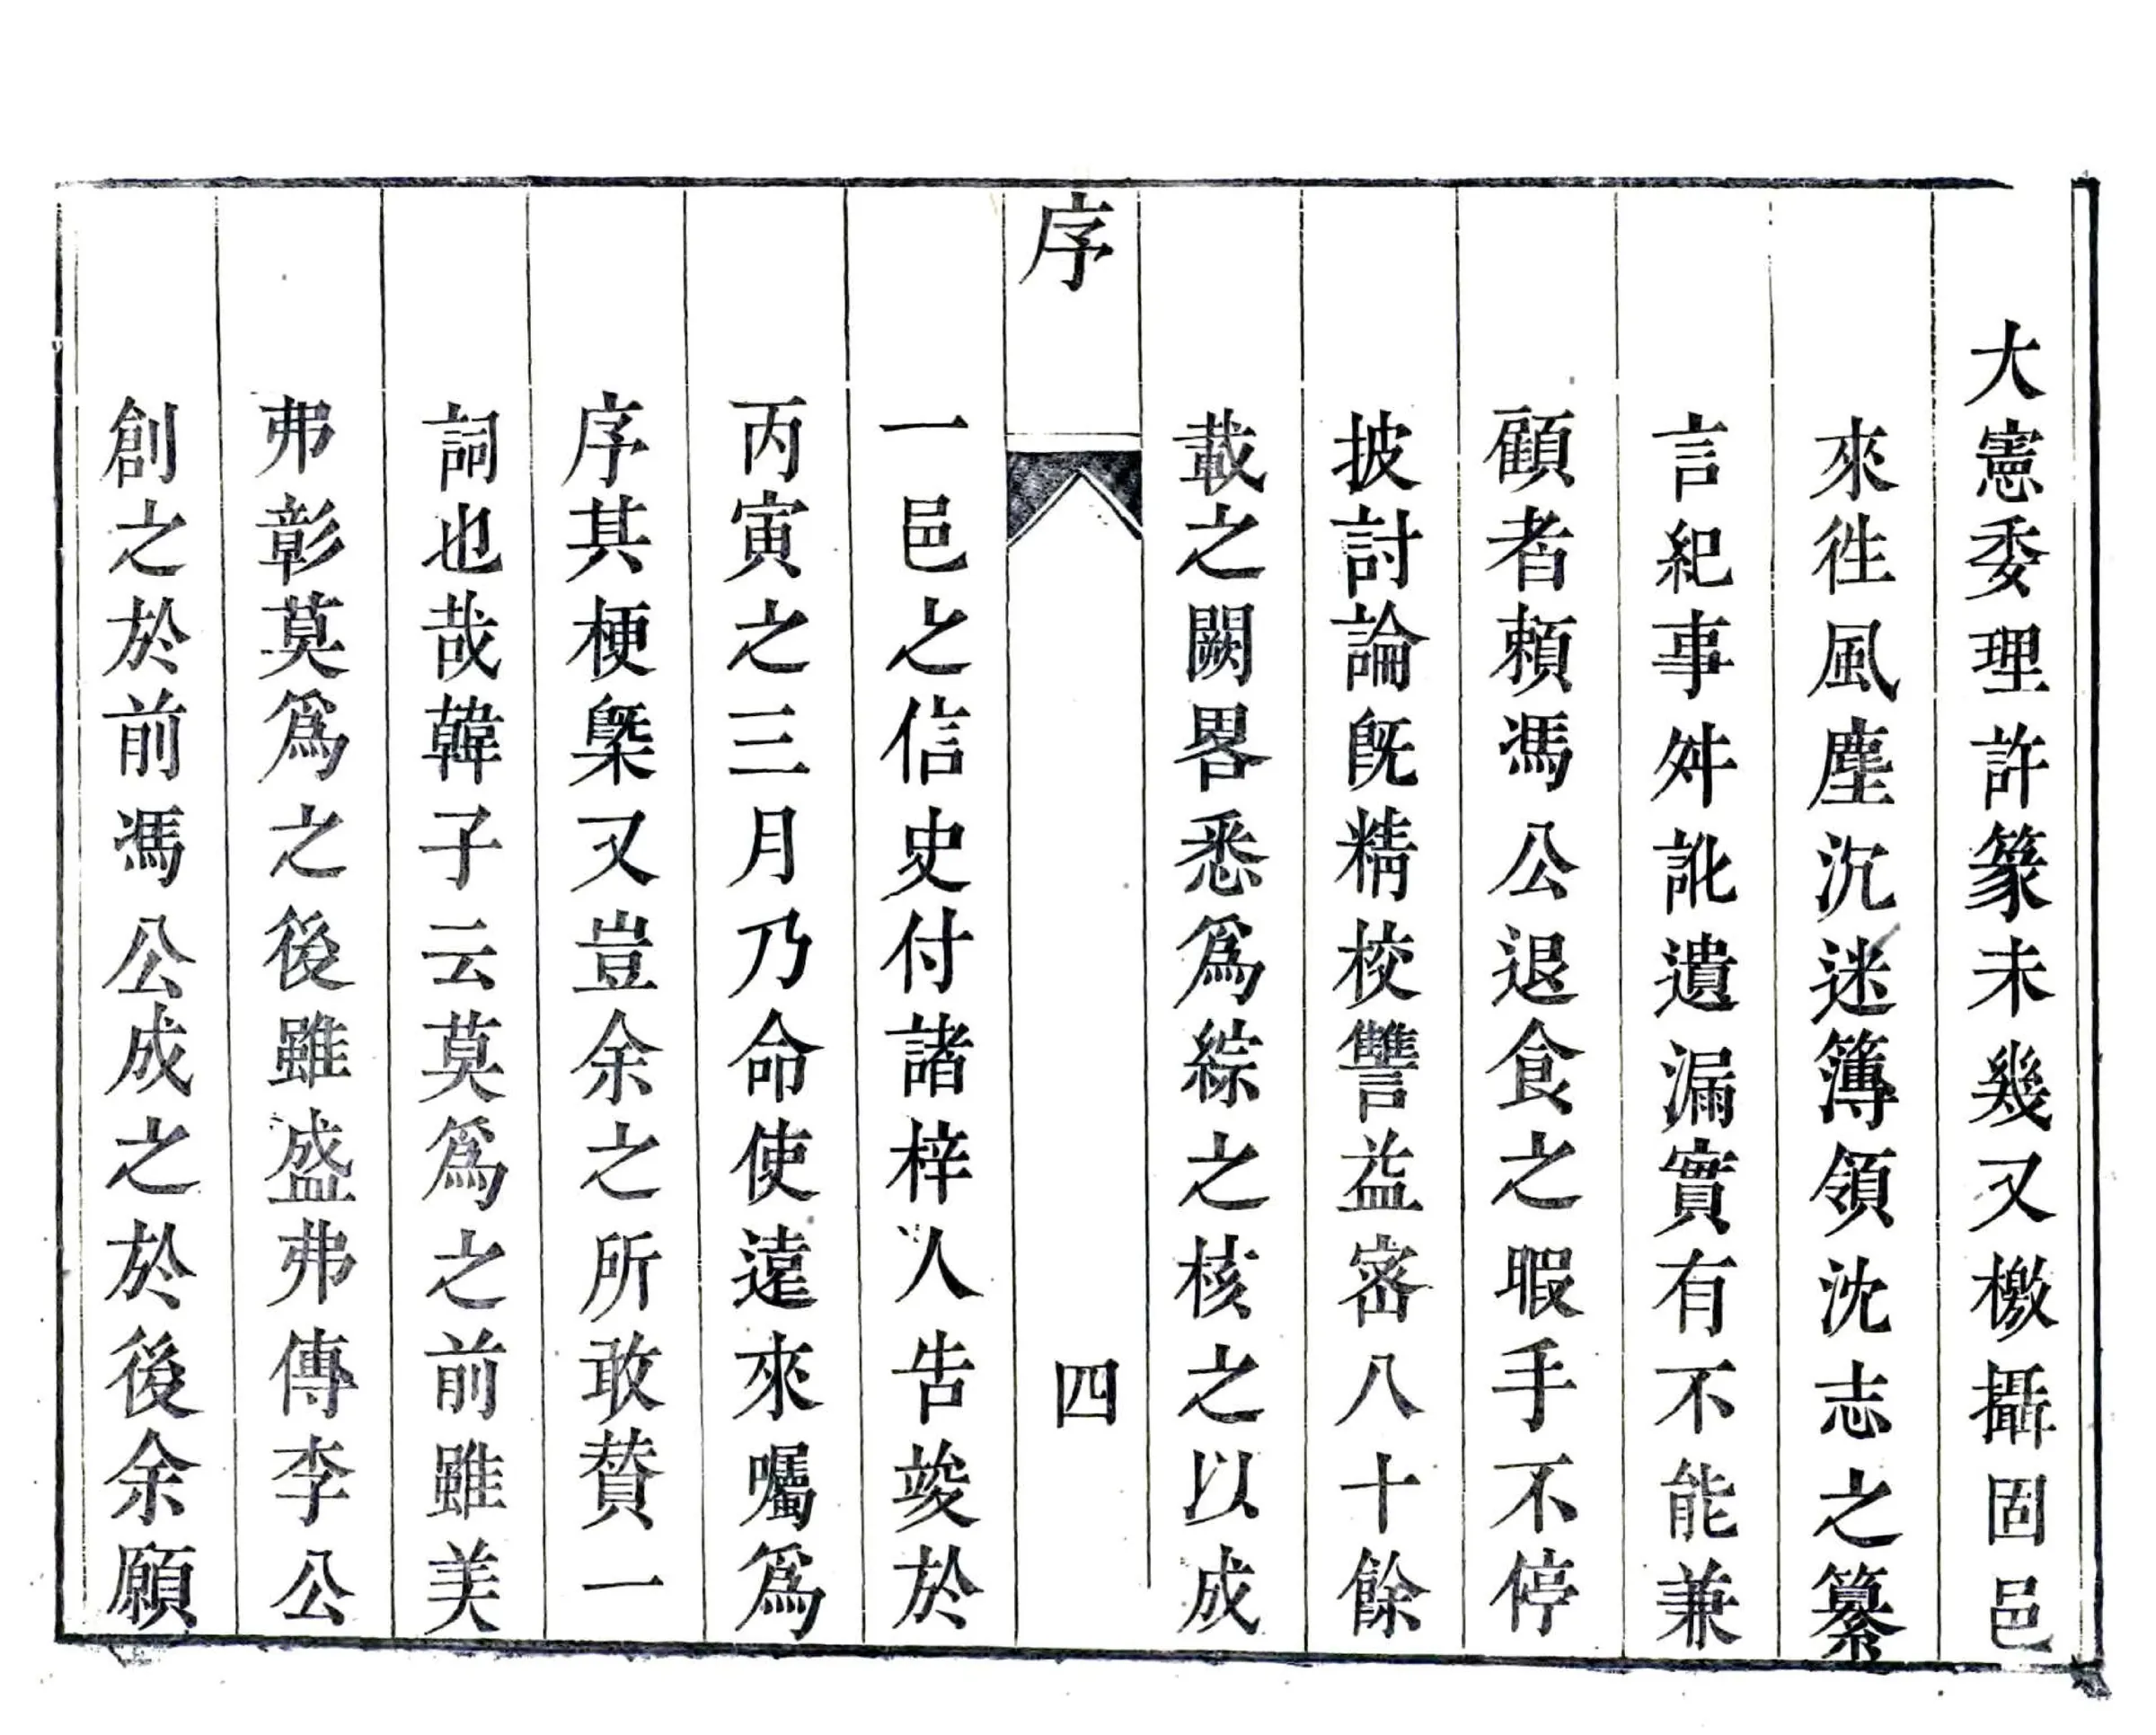 大憲委理許篆未幾又檄攝固邑
來徃風塵沉迷簿領沈志之纂
言紀事舛訛遺漏實有不能兼
顧者頼馮公退食之暇手不停
披討論旣精校讐益宻八十餘
載之闕畧悉爲綜之核之以成
序
四
一邑之信史付諸梓人告竣於
丙寅之三月乃命使遠來囑爲
序其梗槩又豈余之所敢賛一
詞也哉韓子云莫爲之前雖美
弗彰莫爲之後雖盛弗傳李公
創之於前馮公成之於後余願